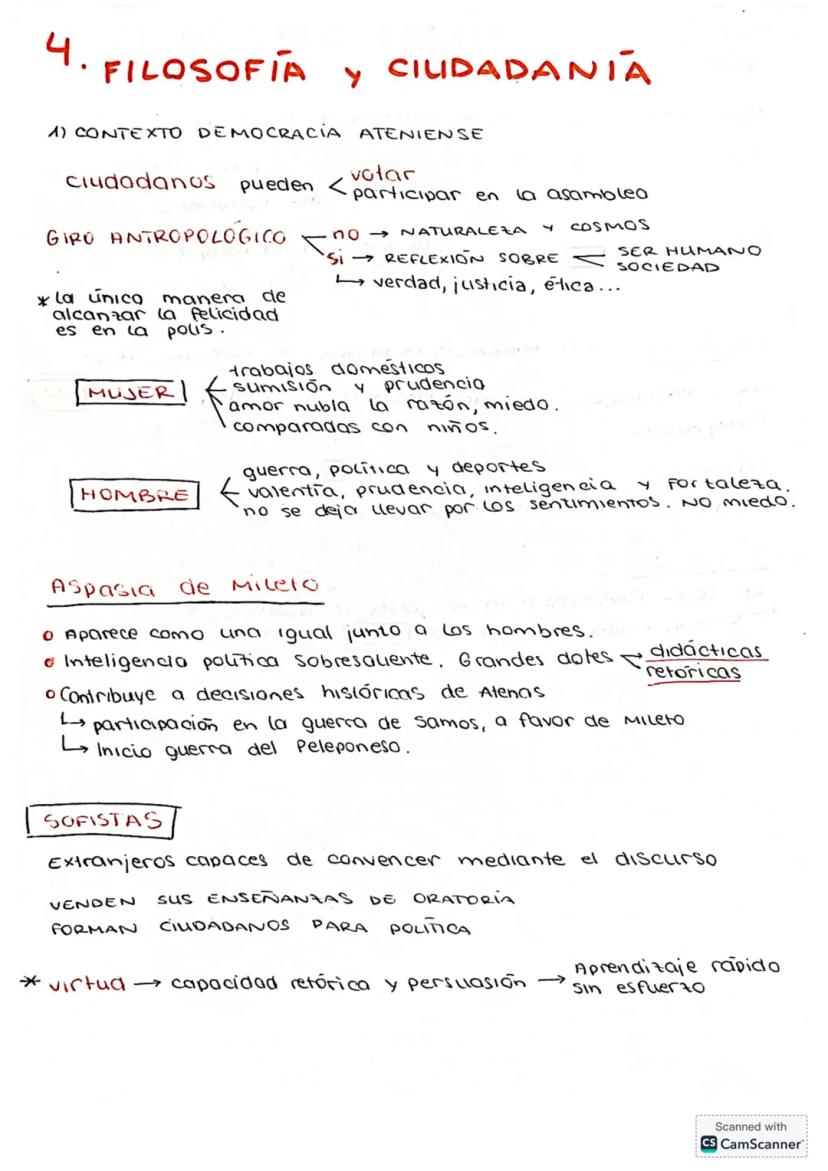 4. FILOSOFÍA y CIUDADANÍA
1) CONTEXTO DEMOCRACIA ATENIENSE
ciudadanos pueden < votar
participar en la asamblea
GIRO ANTROPOLÓGICO no → NATURALEZA Y COSMOS
si → REFLEXIÓN SOBRE SER HUMANO
SOCIEDAD
↳ verdad, justicia, ética...
* la única manera de
alcanzar la felicidad
es en la polis.
MUJER
trabajos domésticos
sumisión y prudencia
amor nubla la razón, miedo.
comparadas con niños.
HOMBRE
guerra, política y deportes
valentía, prudencia, inteligencia y fortaleza.
no se deja llevar por los sentimientos. NO miedo.
Aspasia de Mileto
o Aparece como una igual junto a los hombres.
o Inteligencia política sobresaliente. Grandes dotes didácticas
retóricas
o Contribuye a decisiones históricas de Atenas
↳ participación en la guerra de Samos, a favor de Mileto
↳ Inicio guerra del Peleponeso.
SOFISTAS
Extranjeros capaces de convencer mediante el discurso
VENDEN SUS ENSEÑANZAS DE ORATORIA
FORMAN CIUDADANOS PARA POLÍTICA
* virtud → capacidad retórica y persuasión → Aprendizaje rápido
sin esfuerzo
Scanned with
CS CamScanner